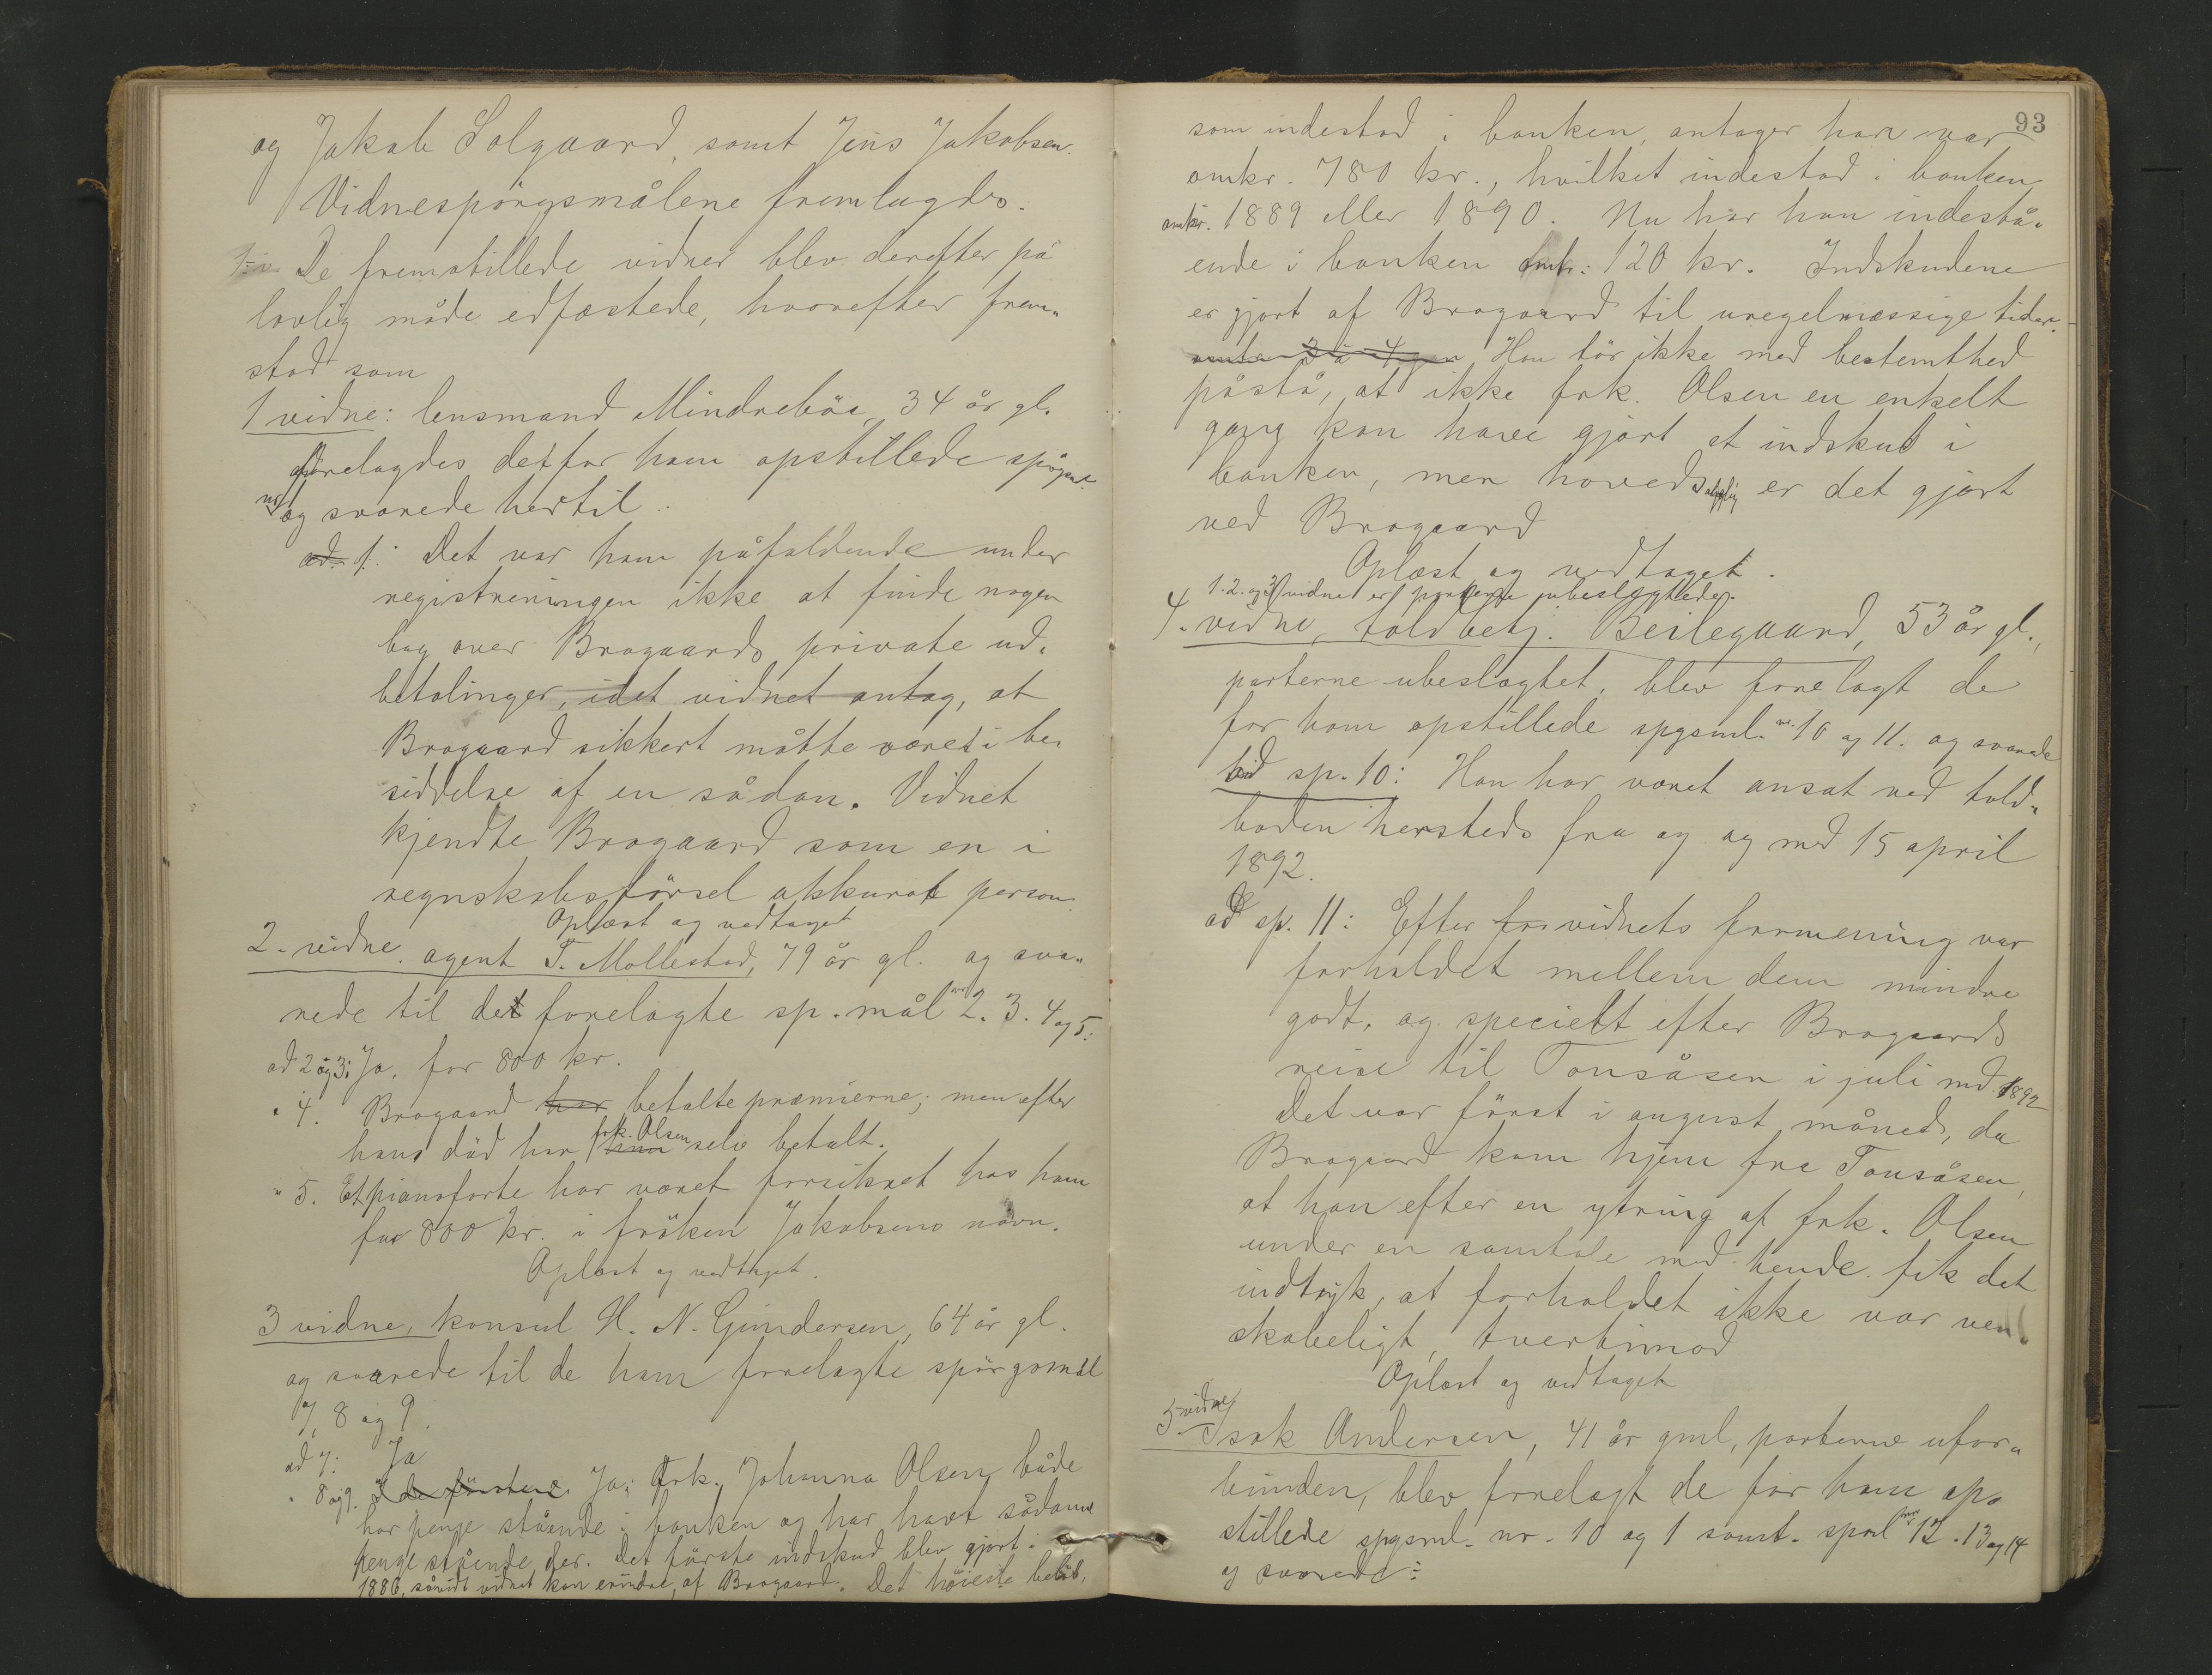 og Jakob Solgaard, samt Jens Jakobsen.
Vidnespörgsmålene fremlagdes.
De fremstillede vidner blev derefter på
lovlig måde edfæstede, hvorefter frem-
stod som
1 vidne: lensmand Mindrebôe, 34 år gl.
forelagdes det for ham opstillede spögsm.
nr 1 og svarede hertil:
ad. 1: Det var ham påfaldende under
registreringen ikke at finde nogen
bog over Brogaards private ud-
betalinger, idet vidnet antog, at
Brogaard sikkert måtte været i be-
siddelse af en sådan. Vidnet
kjendte Brogaard som en i
regnskabsförsel akkurat person.
Oplæst og vedtaget
2. vidne. agent T. Mollestad, 79 år gl. og sva-
rede til det forelagte sp.mål nr 2. 3. 4 og 5:
ad 2 og 3: Ja, for 800 kr.
" 4. Brogaard har betalte præmierne; men efter
hans död har frk. Olsen selv betalt.
" 5. Et pianoforte har været forsikret hos ham
for 800 kr. i fröken Jakobsens navn.
Oplæst og vedtaget.
3 vidne, konsul H. N. Gundersen, 64 år gl.
og svarede til de ham forelagte spörgsmål
7, 8 og 9.
ad 7: Ja
" 8 og 9. Ja; Frk. Johanna Olsen både
har penge stående i banken og har havt sådanne
penge stående der. Det förste indskud blev gjort i
1886, såvidt vidnet kan erindre, af Brogaard. Det höieste belöb,
93
som indestod i banken, antager han var
omkr. 780 kr., hvilket indestod i banken
omkr. 1889 eller 1890. Nu har hun indestå-
ende i banken omkr: 120 kr. Indskudene
er gjort af Brogaard til uregelmæssige tider.
omtr 3 à 4 gr Han tör ikke med bestemthed
påstå, at ikke frk. Olsen en enkelt
gang kan have gjort et indskud i
banken, men hovedsagelig er det gjort
ved Brogaard
Oplæst og vedtaget.
1. 2. og 3 vidne er parterne ubeslægtede.
4. vidne, toldbetj. Beilegaard, 53 år gl.,
parterne ubeslægtet, blev forelagt de
for ham opstillede spgsml. nr. 10 og 11. og svarede
ad sp. 10: Han har været ansat ved told-
boden hersteds fra og og med 15 april
1892.
ad sp. 11: Efter vidnets formening var
forholdet mellem dem mindre
godt, og specielt efter Brogaards
reise til Tonsåsen i juli md. 1892
Det var först i august måned, da
Brogaard kom hjem fra Tonsåsen,
at han efter en ytring af frk. Olsen
under en samtale med hende fik det
indtryk, at forholdet ikke var ven-
skabeligt, tvertimod
Oplæst og vedtaget
5 vidne Isak Andersen, 41 år gml, parterne ufor-
bunden, blev forelagt de for ham op-
stillede spgsml. nr. 10 og 1 samt. spml nr 12. 13 og 14
og svarede: